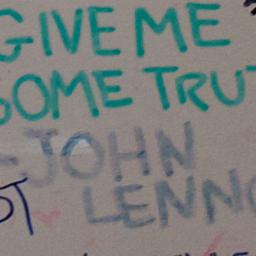 GIVE ME
SOME TRUT
-JOHN
LENNO